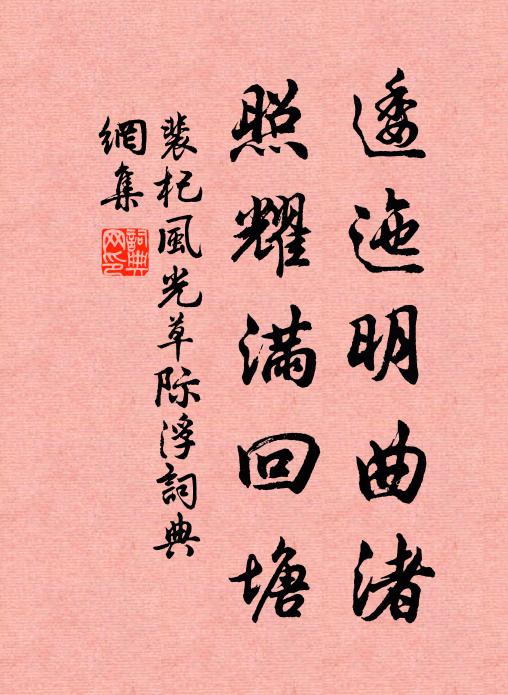 逶迤明曲渚
照耀满回塘
裴杞風光草际浮詞典
網集
詞典
网印